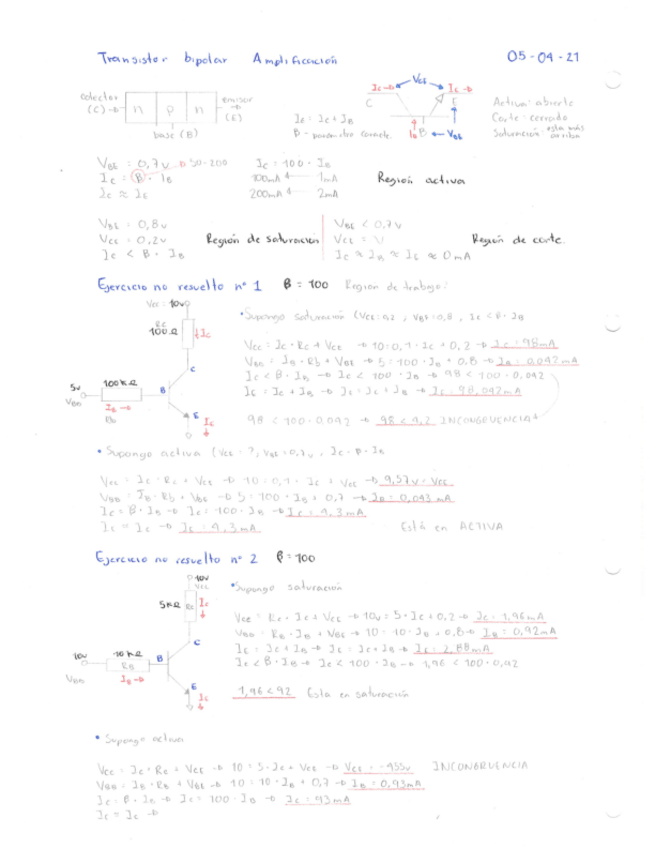 Transistor bipolar Amplificación 05-04-21
colector (C) n p n emisor (E)
base (B)
IE = IC + IB
B - parametro
IC VCE IC
C E
IB B VBE
Activa: abierta
Corte: cerrado
Saturación: esta más arriba
VBE = 0,7v 50-200 IC = 100 · IB
IC = B · IB 100mA 1mA Región activa
IC ≈ IE 200mA 2mA
VBE = 0,8v VBE < 0,7v
VCE = 0,2v Región de saturación VCE = V Región de corte.
IC < B · IB IC ≈ IB ≈ IE ≈ 0mA
Ejercicio no resuelto nº 1 β = 100 Región de trabajo:
VCC = 10v
RC 100Ω IC
• Supongo saturación (VCE = 0,2, VBE = 0,8, IC < B · IB
VCC = IC · RC + VCE → 10 = 0,1 · IC + 0,2 → IC = 98mA
VBB = IB · Rb + VBE → 5 = 100 · IB + 0,8 → IB = 0,042mA
IC < B · IB → IC < 100 · IB → 98 < 100 · 0,042
IE = IC + IB → IE = IC + IB → IE = 98,042mA
98 < 100 · 0.042 → 98 < 4,2 INCONGRUENCIA
5v 100KΩ B C
VBB IB E IE
RB
• Supongo activa (VCE = ?, VBE = 0,7v, IC = β · IB
VCC = IC · RC + VCE → 10 = 0,1 · IC + VCE → 9,57v = VCE
VBB = IB · Rb + VBE → 5 = 100 · IB + 0,7 → IB = 0,043mA
IC = B · IB → IC = 100 · IB → IC = 4,3mA
IE = IC → IE = 4,3mA Está en ACTIVA
Ejercicio no resuelto nº 2 β = 100
10v
VCC
5KΩ RC IC
• Supongo saturación
VCC = RC · IC + VCE → 10v = 5 · IC + 0,2 → IC = 1,96mA
VBB = RB · IB + VBE → 10 = 10 · IB + 0,8 → IB = 0,92mA
IE = IC + IB → IE = IC + IB → IE = 2,88mA
IC < B · IB → IC < 100 · IB → 1,96 < 100 · 0,92
1,96 < 92 Esta en saturación
10v 10KΩ B C
VBB RB IB E IE
• Supongo activa
VCC = IC · RC + VCE → 10 = 5 · IC + VCE → VCE = -455v INCONGRUENCIA
VBB = IB · RB + VBE → 10 = 10 · IB + 0,7 → IB = 0,93mA
IC = B · IB → IC = 100 · IB → IC = 93mA
IE = IC →